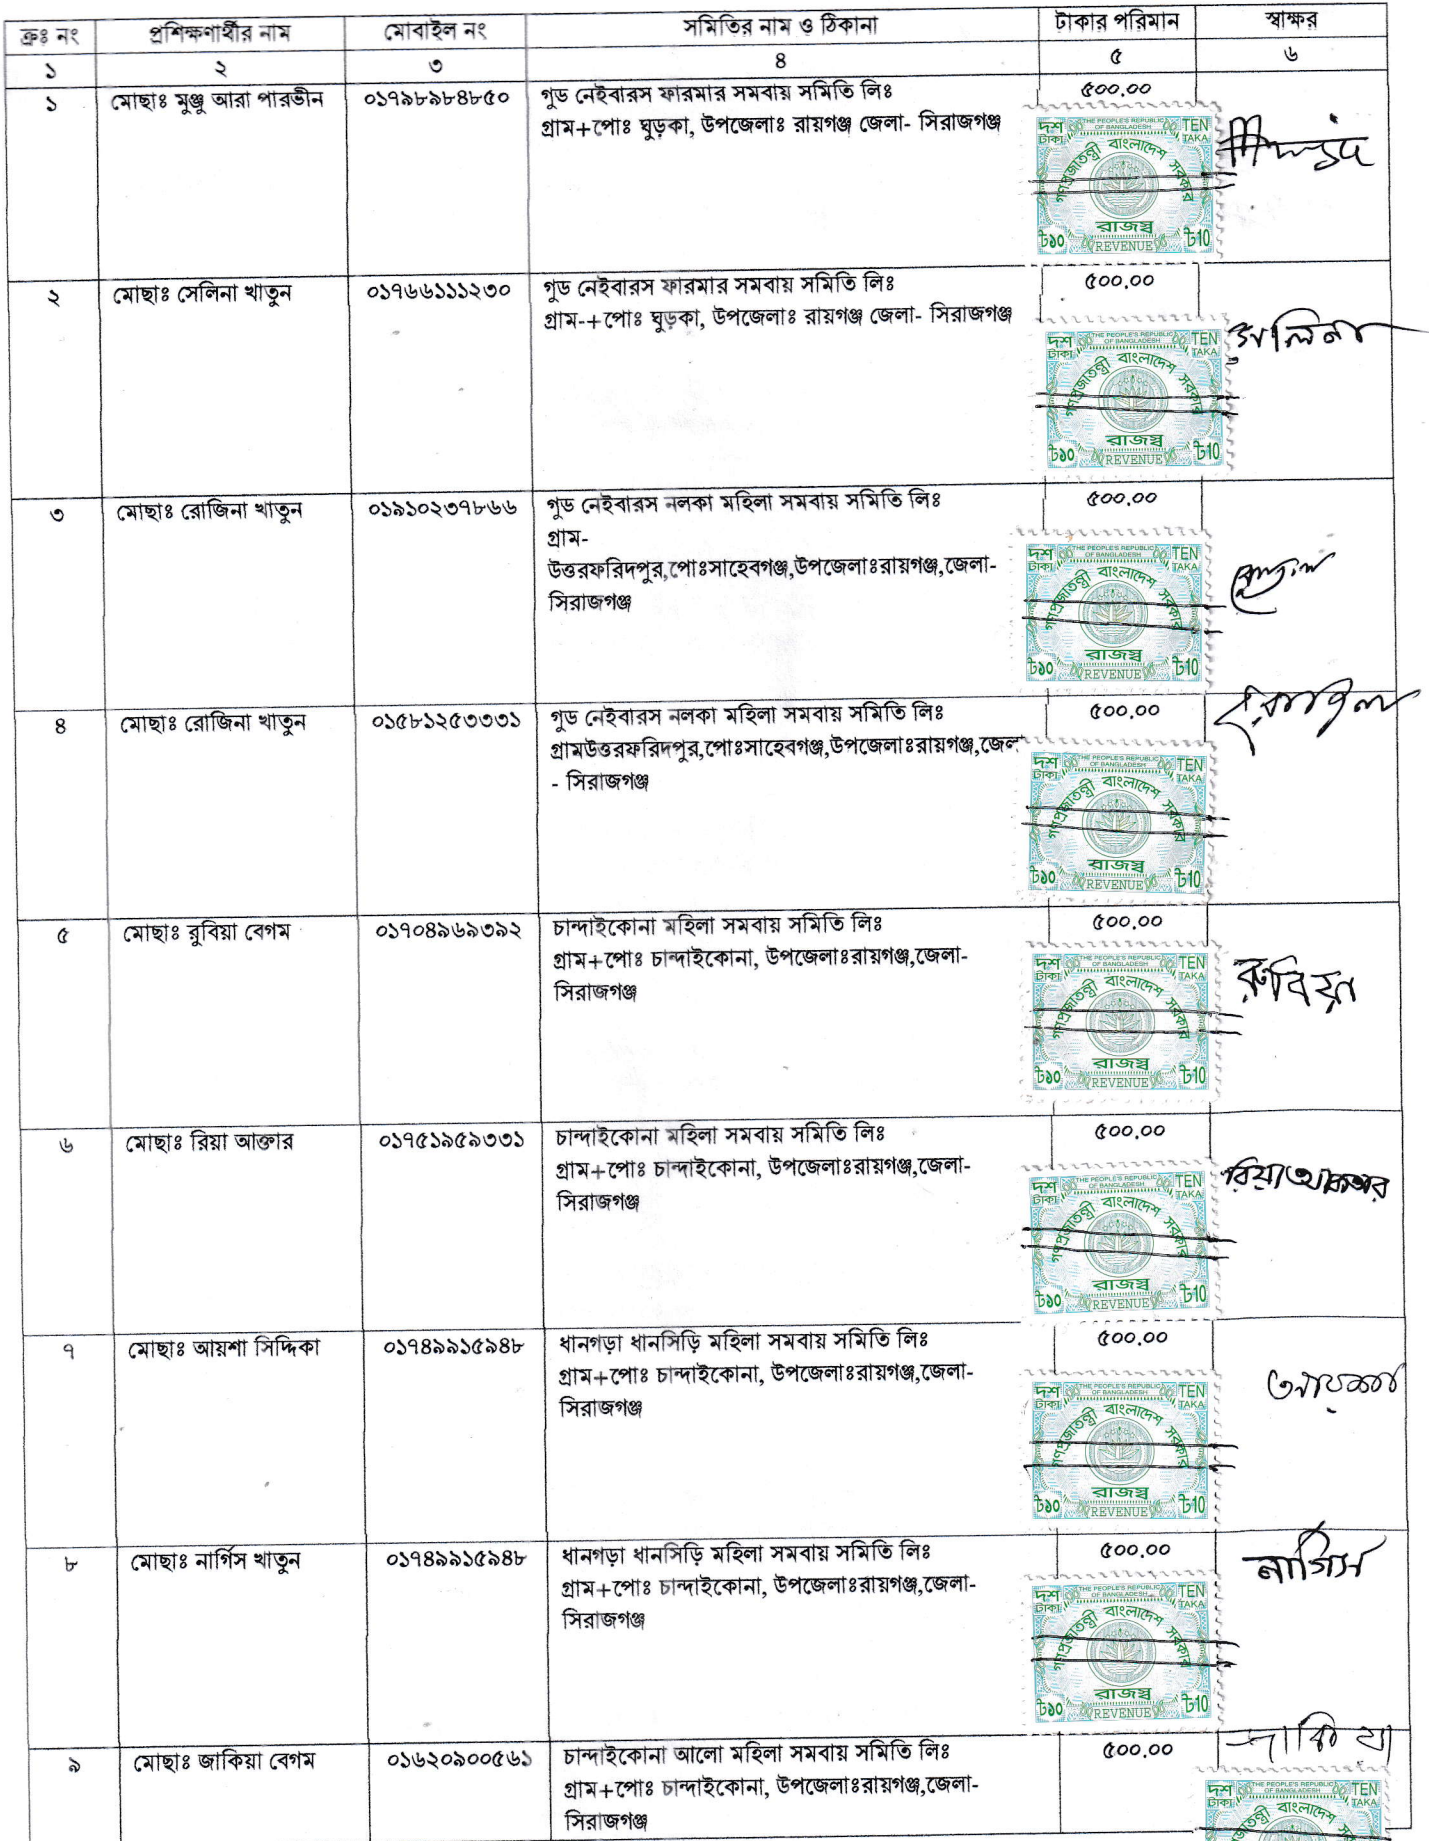 ক্রঃ নং প্রশিক্ষণার্থীর নাম মোবাইল নং সমিতির নাম ও ঠিকানা টাকার পরিমান স্বাক্ষর
১ ২ ৩ ৪ ৫ ৬
১ মোছাঃ মুঞ্জু আরা পারভীন ০১৭৯৮৯৮৪৮৫০ গুড নেইবারস ফারমার সমবায় সমিতি লিঃ ৫০০.০০
গ্রাম+পোঃ ঘুড়কা, উপজেলাঃ রায়গঞ্জ জেলা- সিরাজগঞ্জ
দশ টাকা THE PEOPLE'S REPUBLIC OF BANGLADESH TEN TAKA
গণপ্রজাতন্ত্রী বাংলাদেশ সরকার
রাজস্ব
৳১০ REVENUE ৳10
২ মোছাঃ সেলিনা খাতুন ০১৭৬৬১১১২৩০ গুড নেইবারস ফারমার সমবায় সমিতি লিঃ ৫০০.০০
গ্রাম-+পোঃ ঘুড়কা, উপজেলাঃ রায়গঞ্জ জেলা- সিরাজগঞ্জ
দশ টাকা THE PEOPLE'S REPUBLIC OF BANGLADESH TEN TAKA
গণপ্রজাতন্ত্রী বাংলাদেশ সরকার
রাজস্ব
৳১০ REVENUE ৳10
৩ মোছাঃ রোজিনা খাতুন ০১৯১০২৩৭৮৬৬ গুড নেইবারস নলকা মহিলা সমবায় সমিতি লিঃ ৫০০.০০
গ্রাম-
উত্তরফরিদপুর,পোঃসাহেবগঞ্জ,উপজেলাঃরায়গঞ্জ,জেলা-
সিরাজগঞ্জ
দশ টাকা THE PEOPLE'S REPUBLIC OF BANGLADESH TEN TAKA
গণপ্রজাতন্ত্রী বাংলাদেশ সরকার
রাজস্ব
৳১০ REVENUE ৳10
৪ মোছাঃ রোজিনা খাতুন ০১৫৮১২৫৩৩৩১ গুড নেইবারস নলকা মহিলা সমবায় সমিতি লিঃ ৫০০.০০
গ্রামউত্তরফরিদপুর,পোঃসাহেবগঞ্জ,উপজেলাঃরায়গঞ্জ,জেলা
- সিরাজগঞ্জ
দশ টাকা THE PEOPLE'S REPUBLIC OF BANGLADESH TEN TAKA
গণপ্রজাতন্ত্রী বাংলাদেশ সরকার
রাজস্ব
৳১০ REVENUE ৳10
৫ মোছাঃ রুবিয়া বেগম ০১৭০৪৯৬৯৩৯২ চান্দাইকোনা মহিলা সমবায় সমিতি লিঃ ৫০০.০০
গ্রাম+পোঃ চান্দাইকোনা, উপজেলাঃরায়গঞ্জ,জেলা-
সিরাজগঞ্জ
রুবিয়া
দশ টাকা THE PEOPLE'S REPUBLIC OF BANGLADESH TEN TAKA
গণপ্রজাতন্ত্রী বাংলাদেশ সরকার
রাজস্ব
৳১০ REVENUE ৳10
৬ মোছাঃ রিয়া আক্তার ০১৭৫১৯৫৯৩৩১ চান্দাইকোনা মহিলা সমবায় সমিতি লিঃ ৫০০.০০
গ্রাম+পোঃ চান্দাইকোনা, উপজেলাঃরায়গঞ্জ,জেলা-
সিরাজগঞ্জ
রিয়া
দশ টাকা THE PEOPLE'S REPUBLIC OF BANGLADESH TEN TAKA
গণপ্রজাতন্ত্রী বাংলাদেশ সরকার
রাজস্ব
৳১০ REVENUE ৳10
৭ মোছাঃ আয়শা সিদ্দিকা ০১৭৪৯৯১৫৯৪৮ ধানগড়া ধানসিড়ি মহিলা সমবায় সমিতি লিঃ ৫০০.০০
গ্রাম+পোঃ চান্দাইকোনা, উপজেলাঃরায়গঞ্জ,জেলা-
সিরাজগঞ্জ
দশ টাকা THE PEOPLE'S REPUBLIC OF BANGLADESH TEN TAKA
গণপ্রজাতন্ত্রী বাংলাদেশ সরকার
রাজস্ব
৳১০ REVENUE ৳10
৮ মোছাঃ নার্গিস খাতুন ০১৭৪৯৯১৫৯৪৮ ধানগড়া ধানসিড়ি মহিলা সমবায় সমিতি লিঃ ৫০০.০০
গ্রাম+পোঃ চান্দাইকোনা, উপজেলাঃরায়গঞ্জ,জেলা-
সিরাজগঞ্জ
নার্গিস
দশ টাকা THE PEOPLE'S REPUBLIC OF BANGLADESH TEN TAKA
গণপ্রজাতন্ত্রী বাংলাদেশ সরকার
রাজস্ব
৳১০ REVENUE ৳10
৯ মোছাঃ জাকিয়া বেগম ০১৬২০৯০০৫৬১ চান্দাইকোনা আলো মহিলা সমবায় সমিতি লিঃ ৫০০.০০ জাকিয়া
গ্রাম+পোঃ চান্দাইকোনা, উপজেলাঃরায়গঞ্জ,জেলা-
সিরাজগঞ্জ
দশ টাকা THE PEOPLE'S REPUBLIC OF BANGLADESH TEN TAKA
বাংলাদেশ